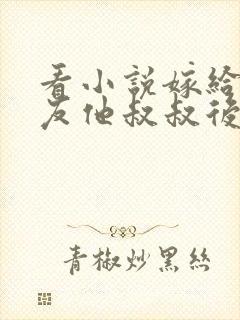 看小説嫁給
友他叔叔後
青椒炒黑絲